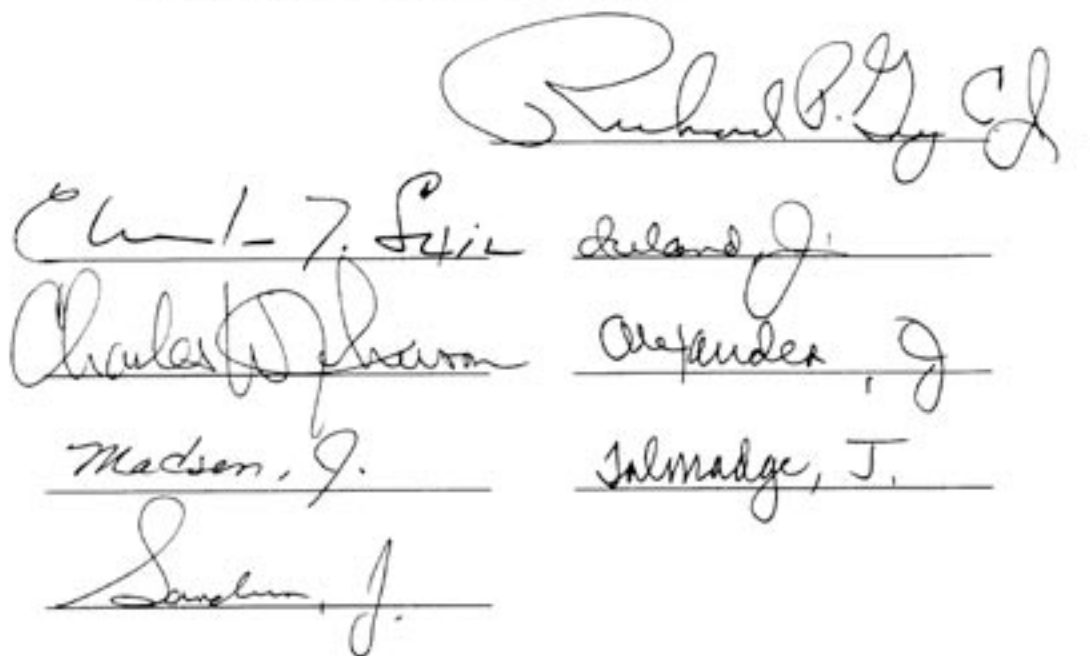 Richard P. Guy CJ
Charles Z. Smith
Ireland, J.
Charles W. Johnson
Alexander, J
Madsen, J.
Talmadge, J.
Sanders, J.